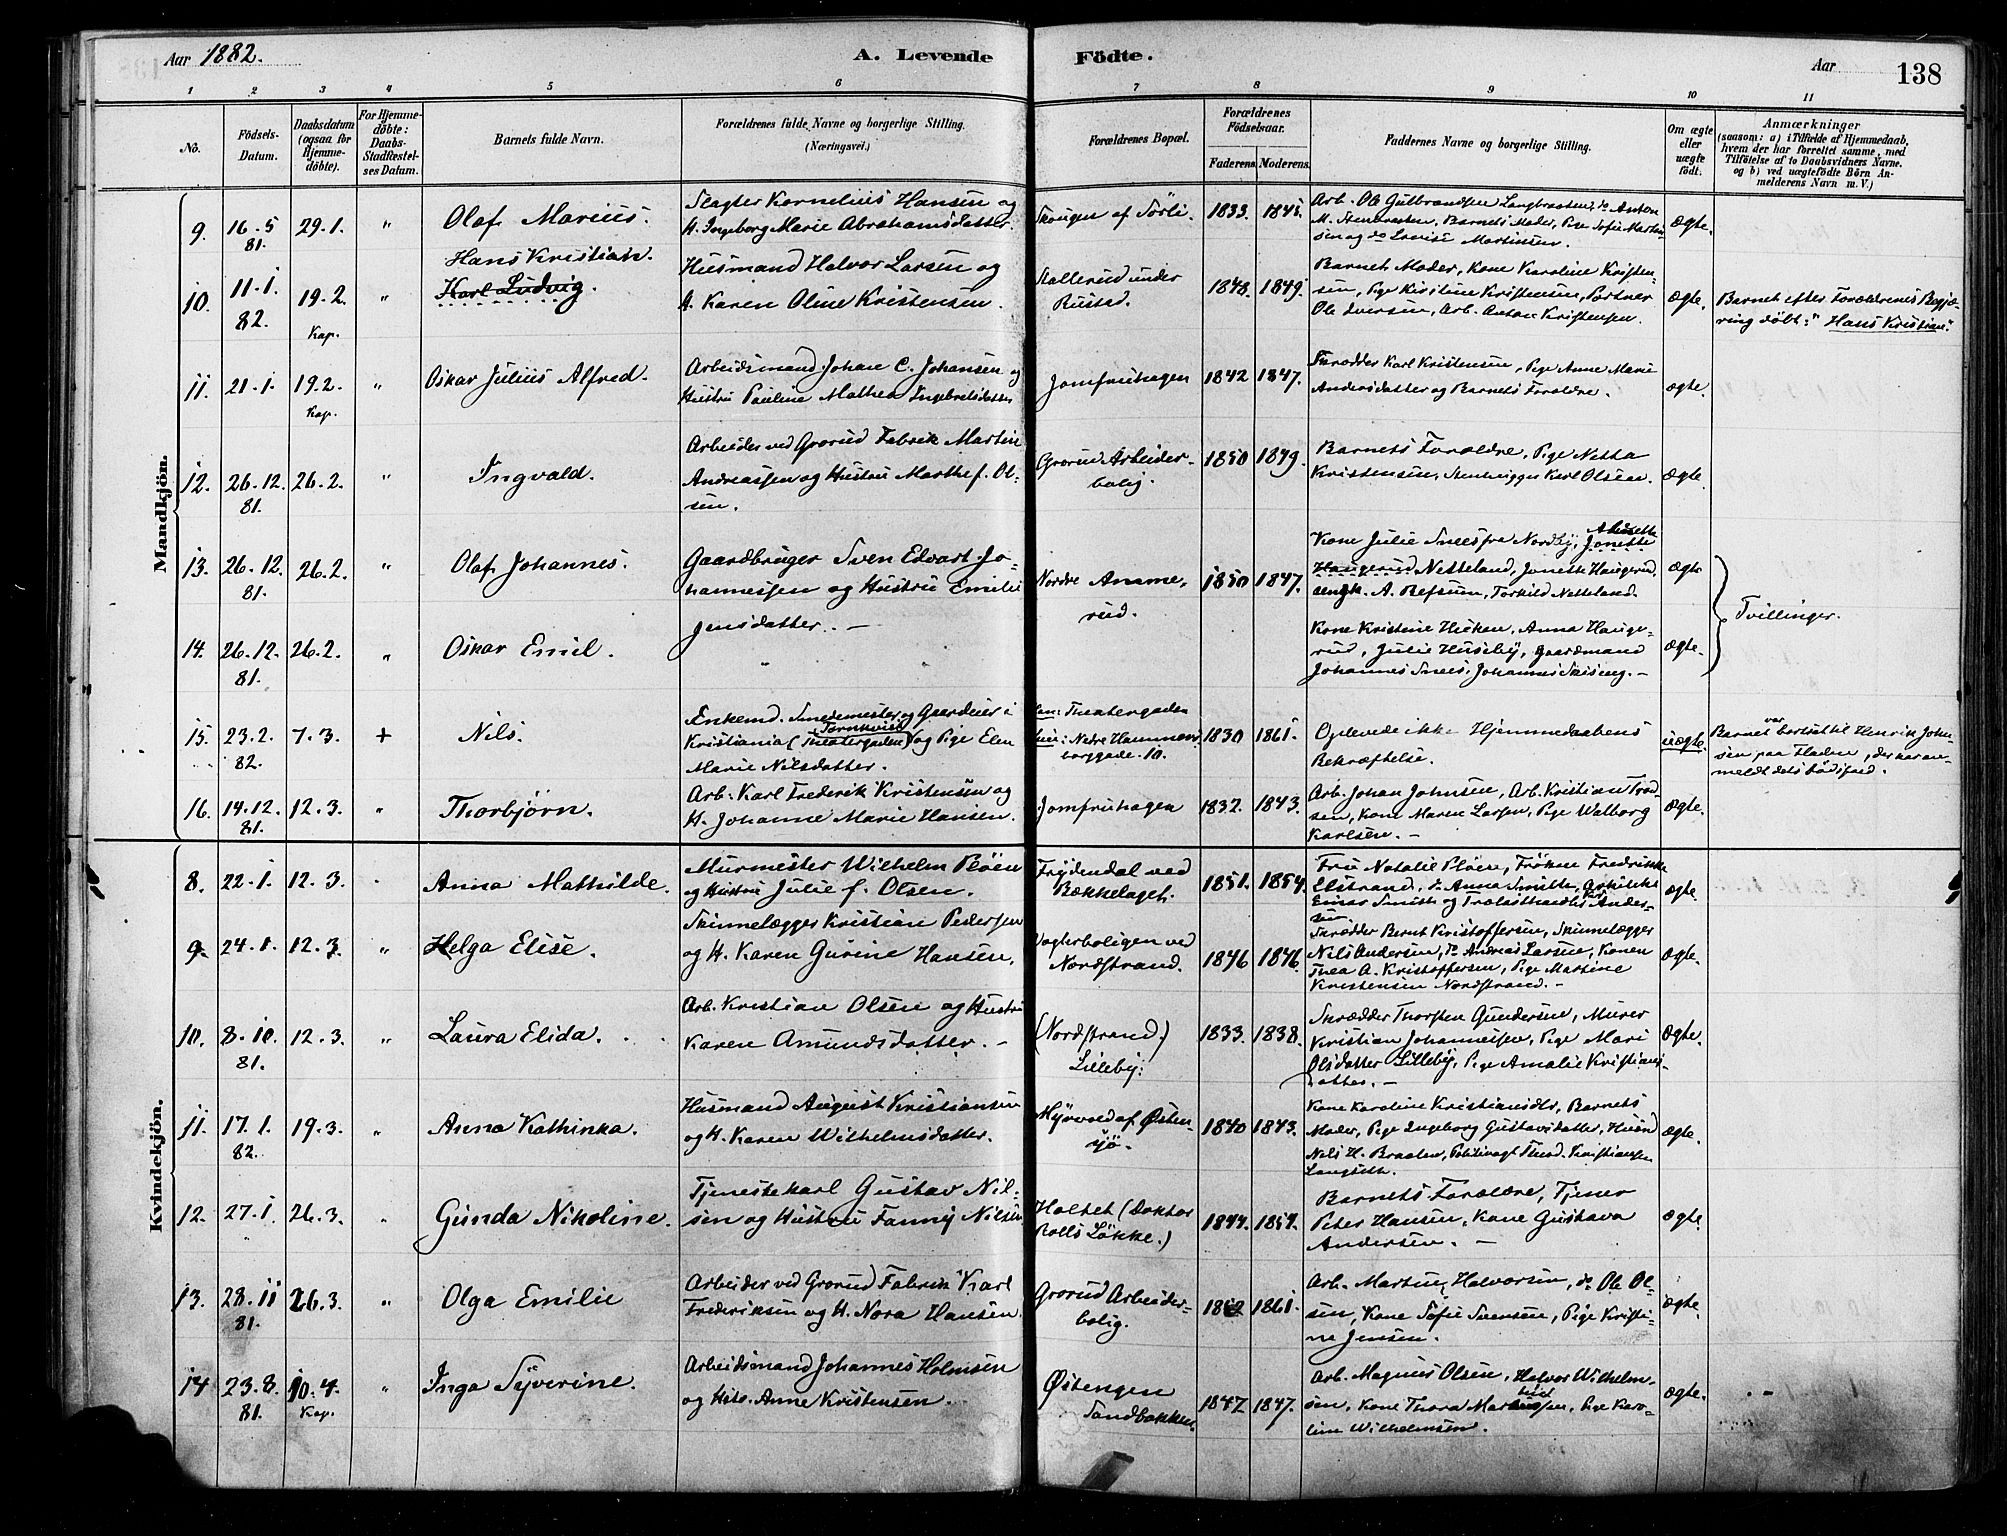 Aar 1882.
A. Levende Födte.
Aar
138
1 2 3 4 5 6 7 8 9 10 11
No.
Födsels-
Datum.
Daabsdatum
(ogsaa for
Hjemme-
döbte).
For Hjemme-
döbte:
Daabs-
Stadfæstel-
ses Datum.
Barnets fulde Navn.
Forældrenes fulde Navne og borgerlige Stilling.
(Næringsvei.)
Forældrenes Bopæl.
Forældrenes
Födselsaar.
Faderens. Moderens.
Faddernes Navne og borgerlige Stilling.
Om ægte
eller
uægte
födt.
Anmærkninger
(saasom: a) i Tilfælde af Hjemmedaab,
hvem der har forrettet samme, med
Tilföielse af to Daabsvidners Navne.
og b) ved uægtefödte Börn An-
melderens Navn m. V.)
Mandkjön.
9. 16-5 81. 29.1. " Olaf Marius.
Slagter Kornelius Hansen og
H. Ingeborg Marie Abrahamsdatter.
Skougen af Sörli. 1833. 1845.
Arb. Ole Gulbrandsen Langbraaten, do Anton
M. Stenbraaten, Barnets Moder, Pige Sofie Martin-
sen og do Lovise Martinsen.
ægte.
10. 11-1. 82. 19.2. Kap. "
Hans Kristian.
Karl Ludvig.
Husmand Halvor Larsen og
H. Karen Oline Kristensen.
Kallerud under
Rustad.
1848. 1849.
Barnets Moder, Kone Karoline Kristen-
sen, Pige Kirstine Kristensen, Portner
Ole Iversen, Arb. Anton Kristensen.
ægte.
Barnet efter Forældrenes Begjæ-
ring döbt: "Hans Kristian".
11. 21-1. 19.2. Kap. " Oskar Julius Alfred.
Arbeidsmand Johan C. Johansen og
Hustru Pauline Mathea Ingebretsdatter
Jomfruhagen 1842 1847.
Skrædder Karl Kristensen, Pige Anne Marie
Andersdatter og Barnets Forældre.
ægte.
12. 26-12. 81. 26.2. " Ingvald.
Arbeider ved Grorud Fabrik Martin
Andreassen og Hustru Marthe f. Ol-
sen.
Grorud Arbeider-
bolig.
1850 1849.
Barnets Forældre, Pige Netta
Kristensen, Stenhugger Karl Olsen.
ægte.
13. 26-12. 81. 26.2. " Olaf Johannes.
Gaardbruger Sven Edvart Jo-
hannessen og Hustru Emilie
Jensdatter. —
Nordre Amme-
rud.
1850 1847.
Kone Julie Snees fra Nordby, Jonette
Haugerud Netteland, Jonette Haugerud,
ungk. A. Refsum, Torkild Netteland.
ægte
Tvillinger.
14. 26-12. 81. 26.2. " Oskar Emil. "
Kone Kristine Hicken, Anna Hauge-
rud, Julie Huseby, Gaardmand
Johannes Snees, Johannes Skiseng. —
ægte.
15. 23.2. 82. 7.3. + Nils.
Enkemd. Smedemester og Gaardeier i
Tornkvist
Kristiania (Theatergaden) og Pige Elen
Marie Nilsdatter.
Han: Theatergaden
hun: Nedre Hammers-
borggade. 10.
1830 1861.
Oplevede ikke Hjemmedaabens
Bekræftelse.
uægte.
Barnet var bortsat til Henrik Johan-
sen paa Fladen, der har an-
meldt dets Dödsfald.
16. 14.12. 81. 12.3. " Thorbjörn.
Arb. Karl Frederik Kristensen og
H. Johanne Marie Hansen.
Jomfruhagen 1832. 1843.
Arb. Johan Johnsen, Arb. Kristian Trod-
sen, Kone Maren Larsen, Pige Walborg
Karlsen. —
ægte.
Kvindekjön.
8. 22-1. 12.3. Anna Mathilde.
Murmester Wilhelm Plöen
og Hustru Julie f. Olsen.
Frydendal ved
Bækkelaget.
1851. 1854.
Fru Natalie Plöen, Fröken Fredrikke
Elstrand, do Anna Smith, Arkitekt
Einar Smith og Trælasthandler Ander-
sen
ægte.
9. 24.1. 12.3. " Helga Elise.
Skinnelægger Kristian Pedersen
og H. Karen Gurine Hansen.
Vogterboligen ved
Nordstrand.
1846 1846.
Skrædder Bernt Kristoffersen, Skinnelægger
Nils Andersen, do Andreas Larsen, Konen
Thea A. Kristoffersen, Pige Martine
Kristensen Nordstrand. —
ægte.
10. 8-10. 81. 12.3. " Laura Elida.
Arb. Kristian Olsen og Hustru
Karen Amundsdatter. —
(Nordstrand.)
Lilleby.
1833. 1838.
Skrædder Thorsten Gundersen, Murer
Kristian Johannessen, Pige Mari
Olsdatter Lilleby, Pige Amalie Kristians-
datter. —
ægte.
11. 17.1. 82. 19.3. " Anna Kathinka.
Husmand August Kristiansen
og H. Karen Wilhelmsdatter.
Myrvold af Østen-
sjö.
1840 1843.
Kone Karoline Kristiansdtr, Barnets
Moder, Pige Ingeborg Gustavsdatter, Husmd
Nils H. Braaten, Politivagt Thvd. Kristiansen
Langseth.
ægte.
12. 27.1. 26.3. " Gunda Nikoline.
Tjenestekarl Gustav Nil-
sen og Hustru Fanny Nilsen
Holtet (Doktor
Rolls Løkke.)
1844. 1854.
Barnets Forældre, Tjener
Peter Hansen, Kone Gustava
Andersen. —
ægte.
13. 28-11 81. 26.3. " Olga Emilie
Arbeider ved Grorud Fabrik Karl
Frederiksen og H. Nora Hansen.
Grorud Arbeider-
bolig.
1861.
Arb. Martin Halvorsen, do Ole Ol-
sen, Kone Sofie Svensen, Pige Kristi-
ne Jensen.
ægte.
14 23.8. 81. 10.4. Kap. " Inga Syverine.
Arbeidsmand Johannes Holmsen
og Hst. Anne Kristensen.
Østengen
Sandbakken.
1847 1847.
Arb. Magnus Olsen, Halvor Wilhelm-
sen, Kone Thora Martinssen, Pige Karo-
line Wilhelmsen.
ægte.